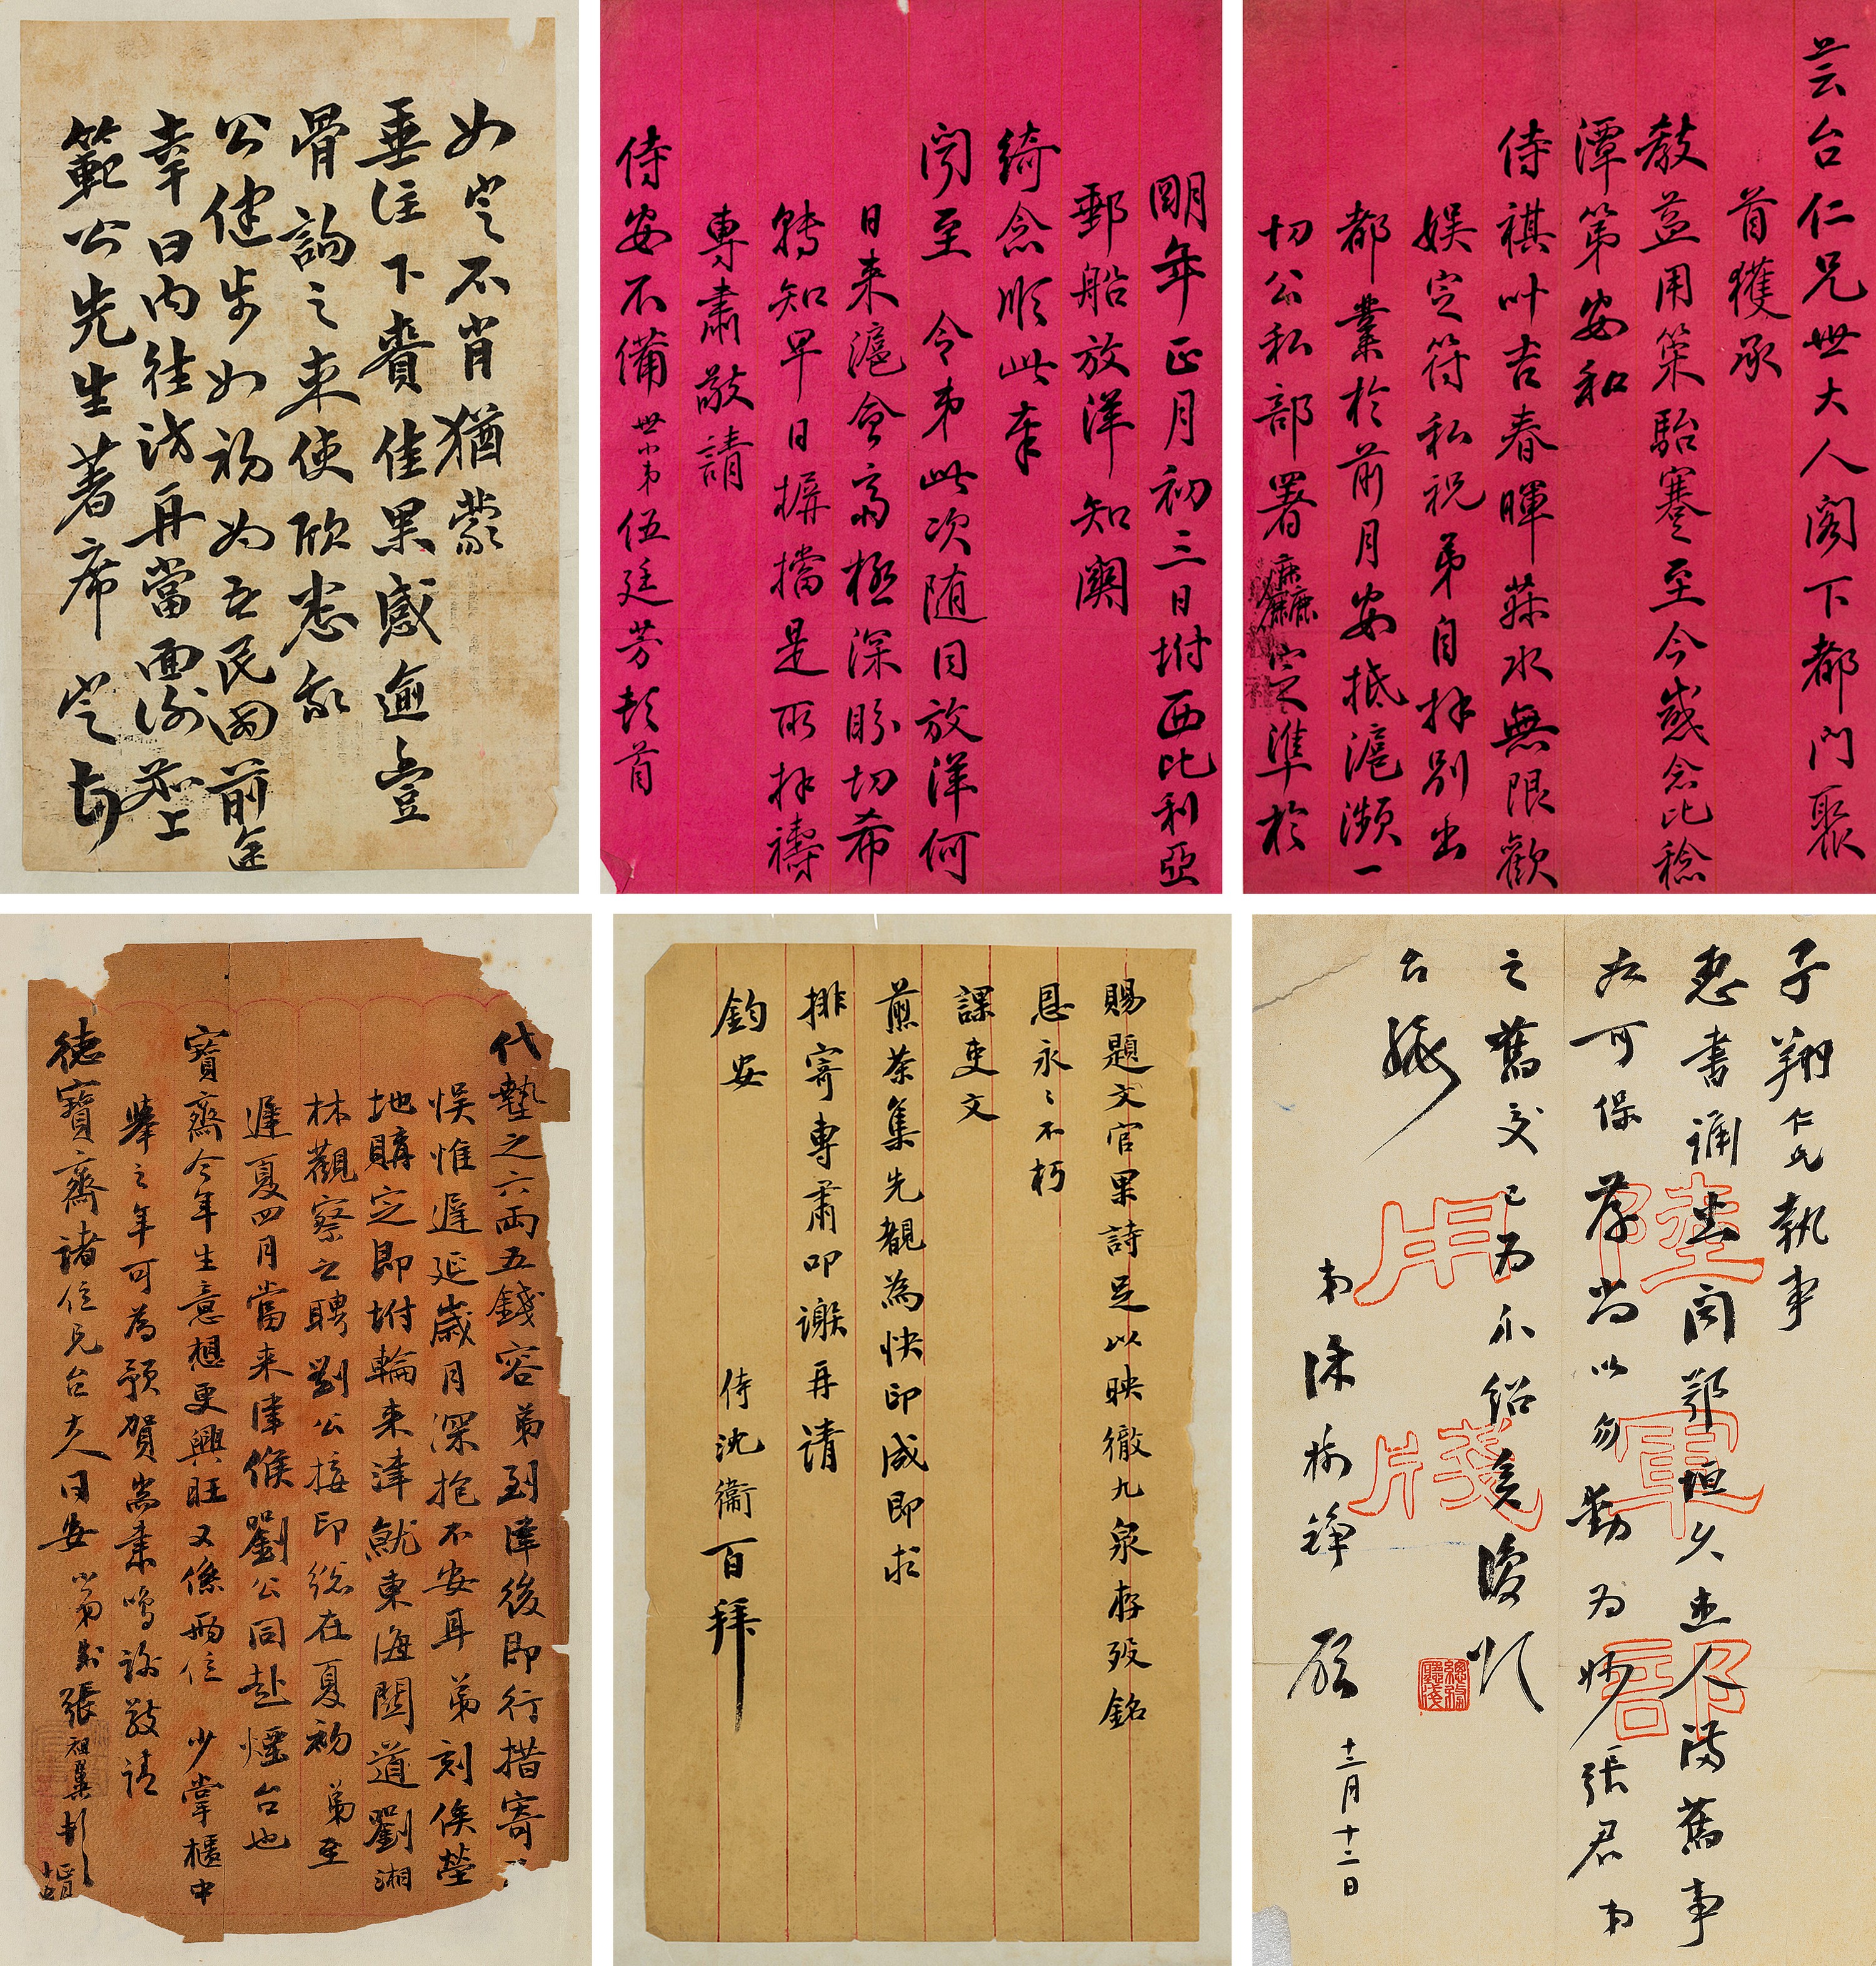 芸台仁兄世大人閣下都門聚
首獲承
教益用策駘蹇至今感念比稔
潭第安和
侍祺叶吉春暉蔴水無限歡
娱定符私祝弟自拜别出
都業於前月安抵滬瀕一
切公私部署
定準於
明年正月初三日坿西比利亞
郵船放洋知関
綺念順此奉
聞至 令弟此次随同放洋何
日来滬會齊極深盼切希
轉知早日摒擋是所拜禱
專肅敬請
侍安不備 世小弟伍廷芳頓首
如意不肖猶蒙
垂注下賚佳果感逾
骨詢之来使欣悉
公健步如初為吾民国前途
幸日内往访再當面谢
上
範公先生著席
子翔仁兄執事
惠書誦悉
可保存尚以勿動為妙張君
之舊交已为介绍矣復頌
台绥
弟徐树铮
十二月十二日
陸軍部用牋
賜題文官果詩足以映徹九泉存殁銘
恩永永不朽
課吏文
煎茶集先覩為快印成即求
排寄專肅叩謝再请
鈞安 侍沈衞百拜
代墊之六两五錢容弟到津後即行措寄
悮惟遲延歲月深抱不安耳 弟刻俟塋
地購定即坿輪来津就東海關道劉湘
林觀察之聘劉公接印総在夏初 弟至
遲夏四月當来津候劉公同赴煙台也
寶齋今年生意想更興旺又係两位 少掌櫃中
舉之年可為預賀耑肅鳴謝敬请
德寶齋諸位兄台大人日安 小弟張祖翼